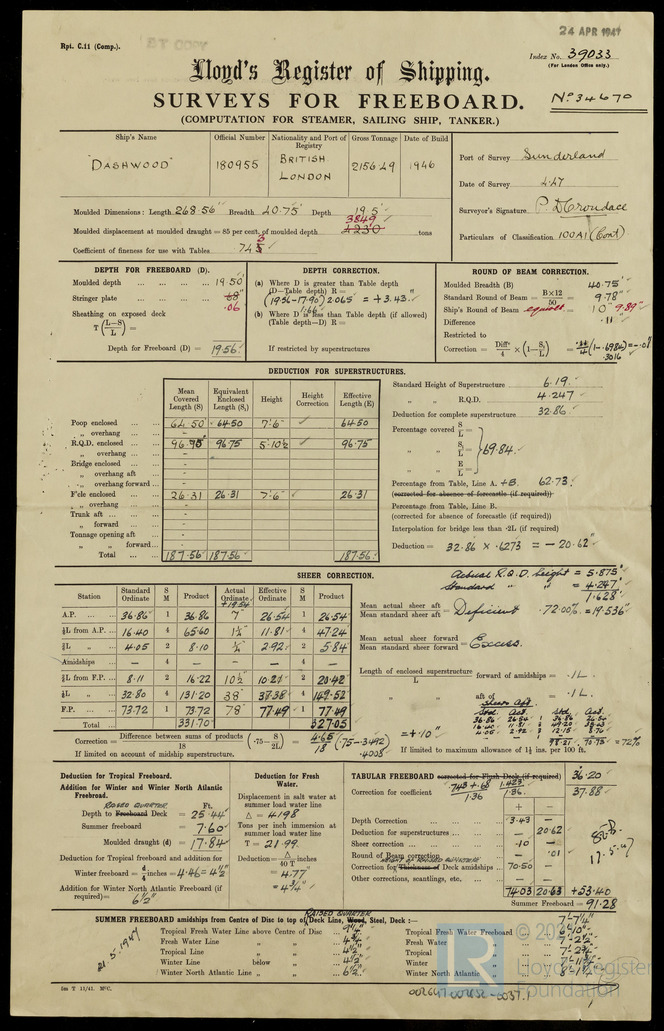 24 APR 1947
Rpt. C.11 (Comp.).
Index No. 39033
(For London Office only.)
Lloyd's Register of Shipping.
No 34670
SURVEYS FOR FREEBOARD.
(COMPUTATION FOR STEAMER, SAILING SHIP, TANKER.)
Ship's Name Official Number Nationality and Port of Registry Gross Tonnage Date of Build
"DASHWOOD" 180955 BRITISH LONDON 2156.49 1946
Port of Survey Sunderland
Date of Survey 4.47
Surveyor's Signature
Particulars of Classification 100A1 (Cont)
Moulded Dimensions: Length 268.56' Breadth 40.75' Depth 19.5'
Moulded displacement at moulded draught = 85 per cent. of moulded depth 4230 3849 tons
Coefficient of fineness for use with Tables
DEPTH FOR FREEBOARD (D).
Moulded depth 19.50
Stringer plate .06
Sheathing on exposed deck
T (L-S/L) =
Depth for Freeboard (D) = 19.56
DEPTH CORRECTION.
(a) Where D is greater than Table depth
(D—Table depth) R =
(19.56-17.90) 2.065 = +3.43
1.66
(b) Where D is less than Table depth (if allowed)
(Table depth—D) R =
If restricted by superstructures
ROUND OF BEAM CORRECTION.
Moulded Breadth (B) 40.75'
Standard Round of Beam = B×12/50 = 9.78"
Ship's Round of Beam = 10" 9.89"
Difference .11
Restricted to
Correction = Diff/4 × (1 - S1/L) = (1-.6984) = -.01
.3016
DEDUCTION FOR SUPERSTRUCTURES.
Mean Covered Length (S) Equivalent Enclosed Length (S1) Height Height Correction Effective Length (E)
Poop enclosed 64.50 64.50 7'-6" 64.50
„ overhang -
R.Q.D. enclosed 96.75 96.75 5'-10½" 96.75
„ overhang -
Bridge enclosed -
„ overhang aft -
„ overhang forward -
F'cle enclosed 26.31 26.31 7'-6" 26.31
„ overhang -
Trunk aft -
„ forward -
Tonnage opening aft -
„ „ forward -
Total 187.56 187.56 187.56
Standard Height of Superstructure 6.19
„ „ R.Q.D. 4.247
Deduction for complete superstructure 32.86
Percentage covered S/L =
„ „ S1/L = } 69.84
„ „ E/L =
Percentage from Table, Line A. +B. 62.73
(corrected for absence of forecastle (if required))
Percentage from Table, Line B.
(corrected for absence of forecastle (if required))
Interpolation for bridge less than ·2L (if required)
Deduction = 32.86 × .6273 = -20.62"
SHEER CORRECTION.
Actual R.Q.D. height = 5.875'
Standard „ „ = 4.247'
1.628'
= 19.536"
Station Standard Ordinate S M Product Actual Ordinate Effective Ordinate S M Product
+19.54
A.P. 36.86 1 36.86 7" 26.54 1 26.54
⅙L from A.P. 16.40 4 65.60 1¼" 11.81 4 47.24
⅓L „ 4.05 2 8.10 ¼" 2.92 2 5.84
Amidships - 4 - - - 4 -
⅓L from F.P. 8.11 2 16.22 10½" 10.21 2 20.42
⅙L „ 32.80 4 131.20 38" 37.38 4 149.52
F.P. 73.72 1 73.72 78" 77.49 1 77.49
Total 331.70 327.05
Mean actual sheer aft / Mean standard sheer aft = Deficient .7200%
Mean actual sheer forward / Mean standard sheer forward = Excess.
Length of enclosed superstructure / L forward of amidships = .1L
„ aft of „ = .1L
Sheer Aft
Std. Act. Std. Act.
36.86 26.54 1 36.86 26.54
16.40 11.81 3
4.05 2.92 3 12.15 8.76
98.21 70.73 = 72%
Correction = Difference between sums of products / 18 (·75 - S/2L) = 4.65/18 (.75-.3492) = +.10"
.4008
If limited on account of midship superstructure.
If limited to maximum allowance of 1½ ins. per 100 ft.
Deduction for Tropical Freeboard.
Addition for Winter and Winter North Atlantic Freeboard.
RAISED QUARTER Ft.
Depth to Freeboard Deck = 25.44
Summer freeboard = 7.60
Moulded draught (d) = 17.84
Deduction for Tropical freeboard and addition for
Winter freeboard = d/4 inches = 4.46 = 4½"
Addition for Winter North Atlantic Freeboard (if required) = 6½"
Deduction for Fresh Water.
Displacement in salt water at summer load water line
Δ = 4198
Tons per inch immersion at summer load water line
T = 21.99
Deduction = Δ/40T inches
= 4.77
= 4¾"
TABULAR FREEBOARD corrected for Flush Deck (if required) 36.20
Correction for coefficient .743+.68/1.36 1.423/1.36 37.88
+ -
Depth Correction 3.43 -
Deduction for superstructures - 20.62
Sheer correction .10 -
Round of Beam correction - .01
HEIGHT OF RAISED QUARTER
Correction for Thickness of Deck amidships 70.50 -
Other corrections, scantlings, etc. - -
74.03 20.63 +53.40
Summer Freeboard = 91.28
17.5.47
SUMMER FREEBOARD amidships from Centre of Disc to top of RAISED QUARTER Deck Line, Wood, Steel, Deck :— 7'-7¼"
Tropical Fresh Water Line above Centre of Disc 9¼"
Fresh Water Line „ „ 4¾"
Tropical Line „ „ 4½"
Winter Line below „ „ 4½"
Winter North Atlantic Line „ „ 6½"
Tropical Fresh Water Freeboard 6'-10"
Fresh Water „ 7'-2½"
Tropical „ 7'-2¾"
Winter „ 7'-11¾"
Winter North Atlantic „
21.5.1947
LR
Lloyd's Register
Foundation
002647-002652-0037.1